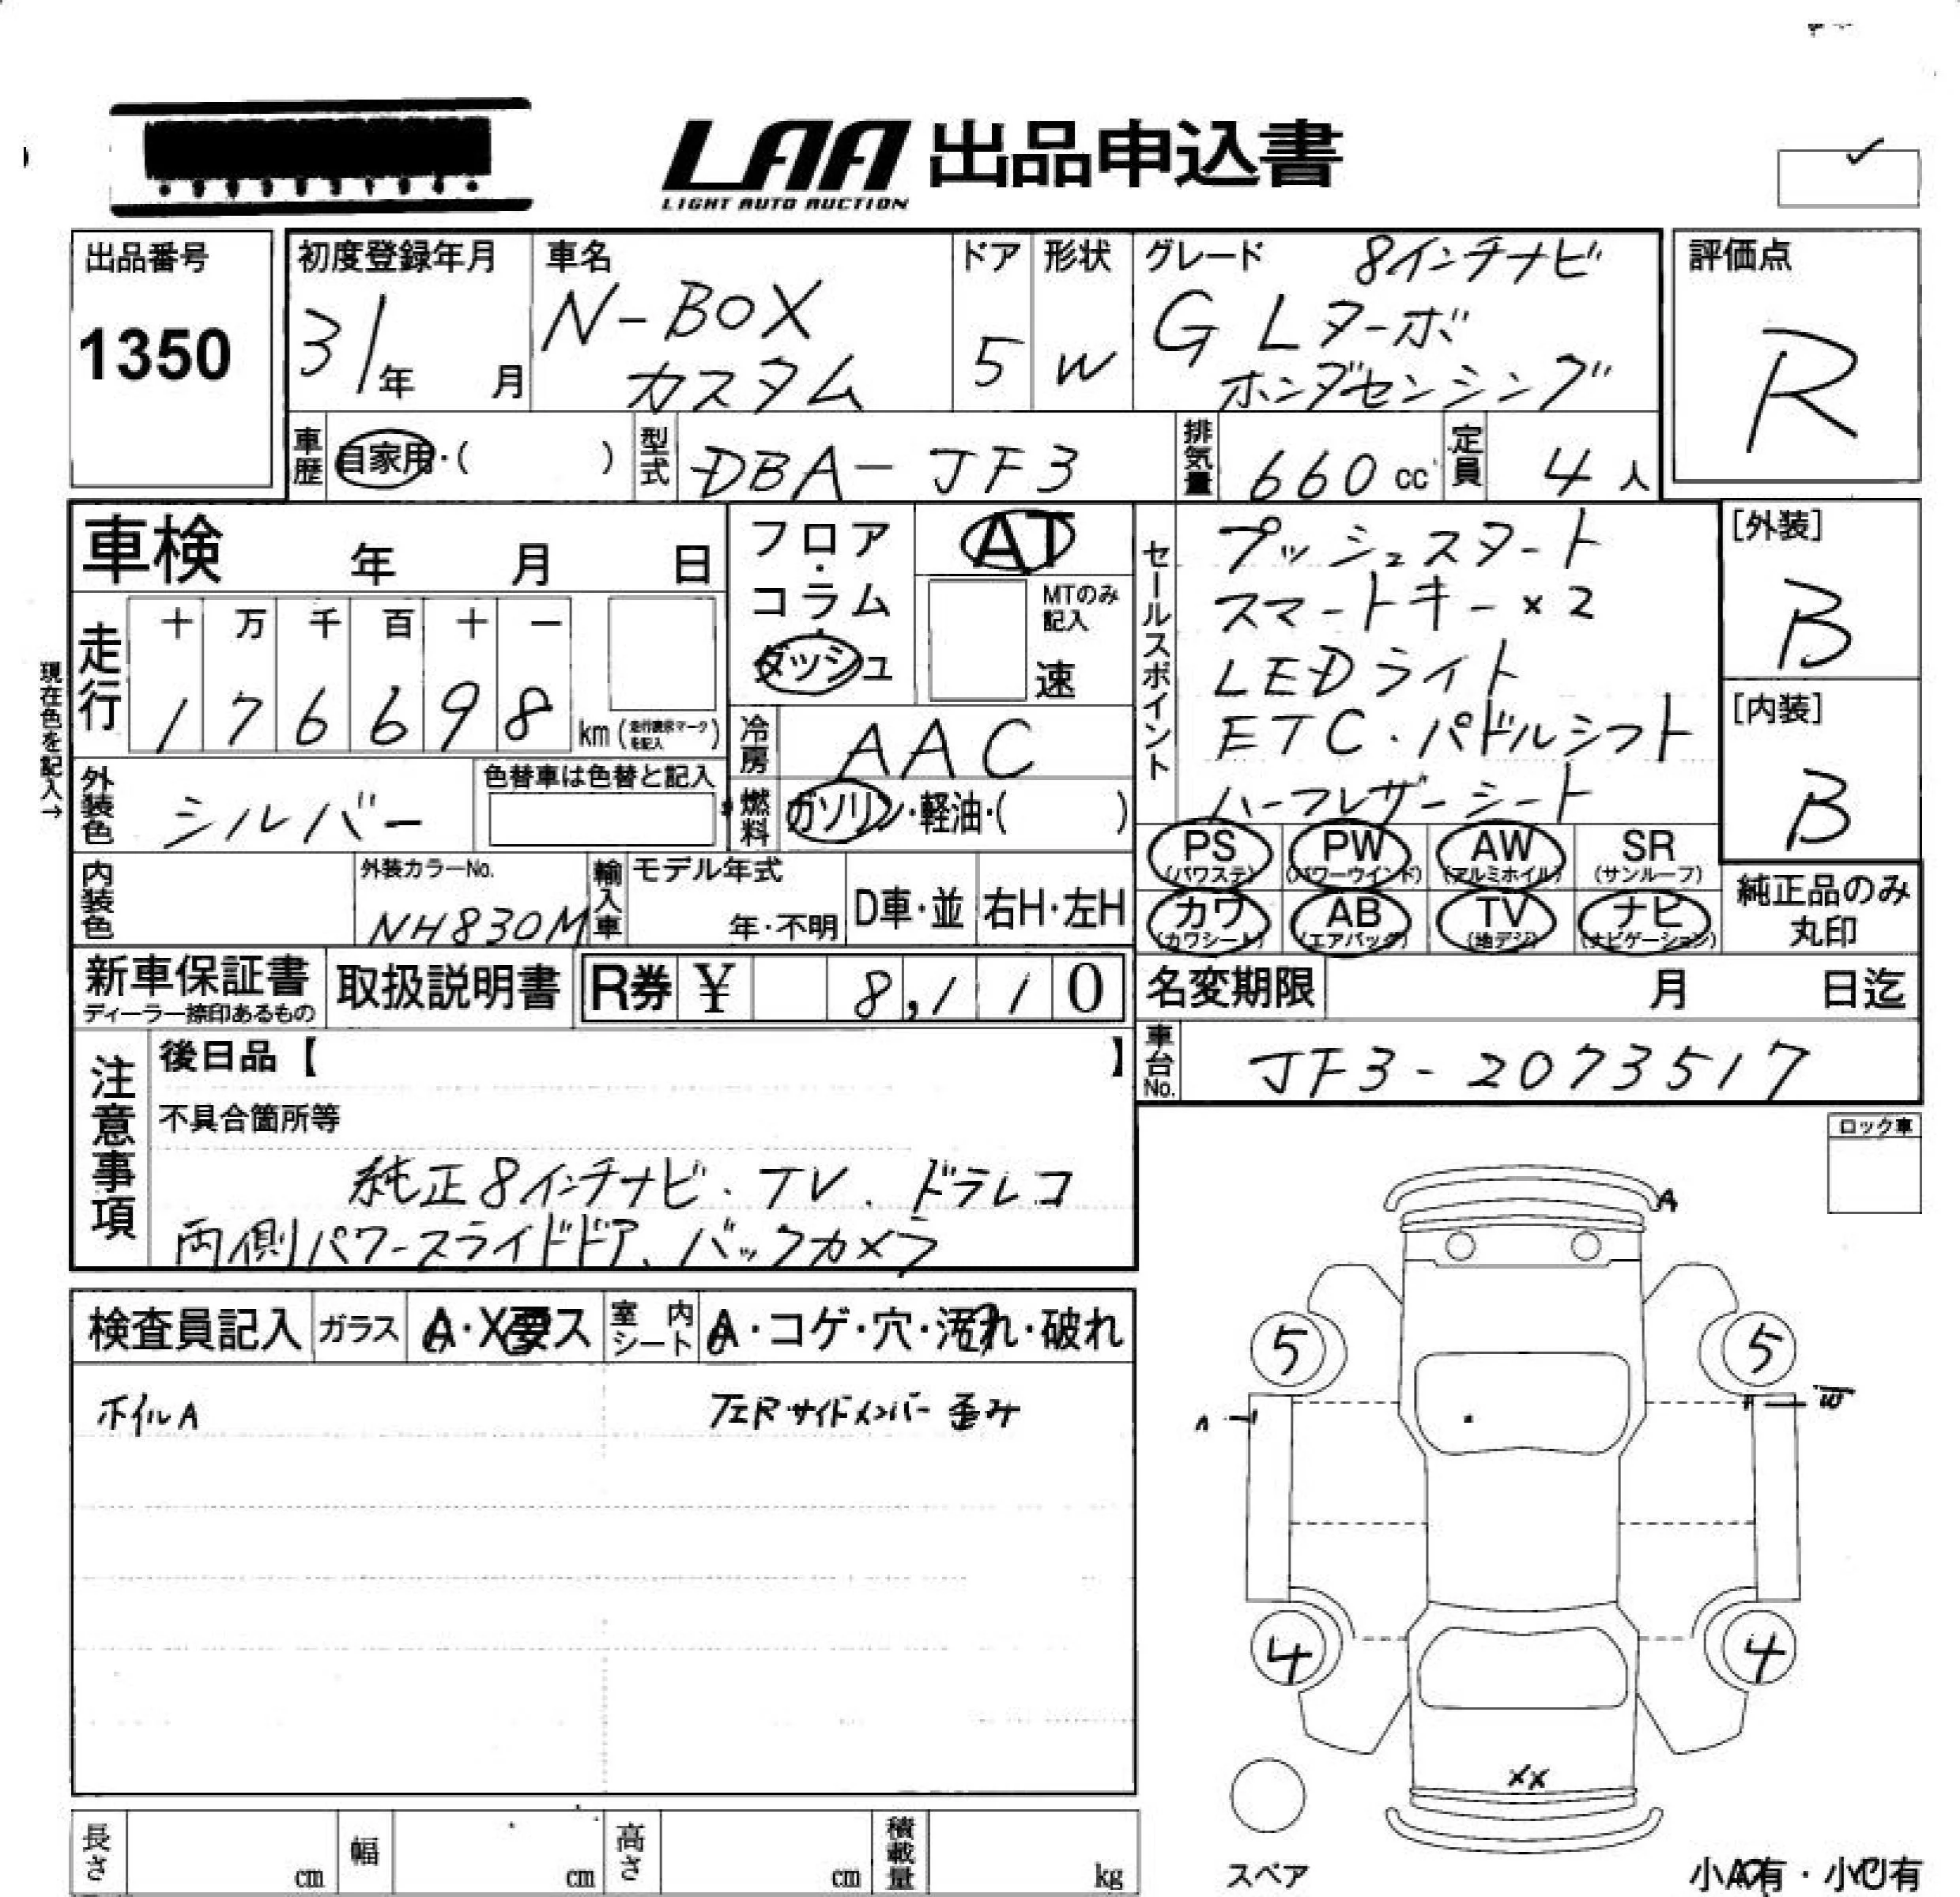 LAA 出品申込書
LIGHT AUTO AUCTION
出品番号
1350
初度登録年月
31年 月
車名
N-BOX
カスタム
ドア
5
形状
W
グレード 8インチナビ
G Lターボ
ホンダセンシング
評価点
R
車歴 自家用・( )
型式 DBA-JF3
排気量 660cc
定員 4人
車検 年 月 日
現在色を記入→
走行 十 万 千 百 十 一
1 7 6 6 9 8 km
外装色 シルバー
色替車は色替と記入
内装色
外装カラーNo.
NH830M
輸入車
モデル年式
年・不明
D車・並
右H・左H
フロア・コラム・ダッシュ
AT
MTのみ記入
速
冷房 AAC
燃料 ガソリン・軽油・( )
セールスポイント
プッシュスタート
スマートキー×2
LEDライト
ETC・パドルシフト
ハーフレザーシート
[外装]
B
[内装]
B
PS (パワステ)
PW (パワーウインド)
AW (アルミホイル)
SR (サンルーフ)
カワ (カワシート)
AB (エアバック)
TV (地デジ)
ナビ (ナビゲーション)
純正品のみ丸印
新車保証書
ディーラー捺印あるもの
取扱説明書
R券 ¥ 8,110
名変期限 月 日迄
車台No. JF3-2073517
注意事項
後日品【 】
不具合箇所等
純正8インチナビ、TV、ドラレコ
両側パワースライドドア、バックカメラ
ロック車
検査員記入
ガラス A・X要ス
室内シート A・コゲ・穴・汚れ・破れ
ホイルA
左Rサイドメンバー歪み
A
5 5
A W
4 4
XX
スペア
小A有・小U有
長さ cm
幅 cm
高さ cm
積載量 kg